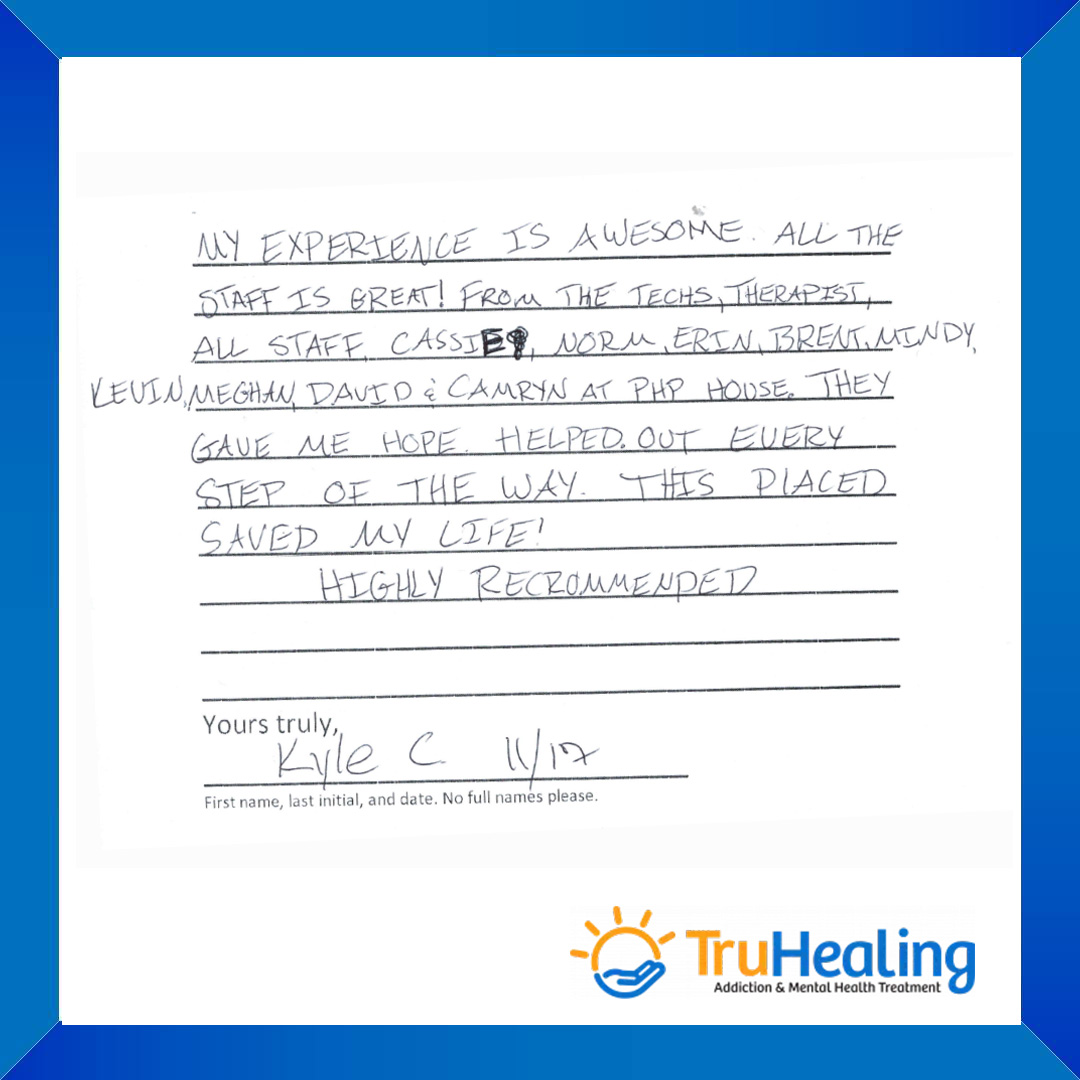 MY EXPERIENCE IS AWESOME. ALL THE
STAFF IS GREAT! FROM THE TECHS, THERAPIST,
ALL STAFF, CASSIE, NORM, ERIN, BRENT, MINDY,
KEVIN, MEGHAN, DAVID & CAMRYN AT PHP HOUSE. THEY
GAVE ME HOPE. HELPED. OUT EVERY
STEP OF THE WAY. THIS PLACED
SAVED MY LIFE!
HIGHLY RECROMMENDED
Yours truly,
Kyle C 11/17
First name, last initial, and date. No full names please.
TruHealing
Addiction & Mental Health Treatment